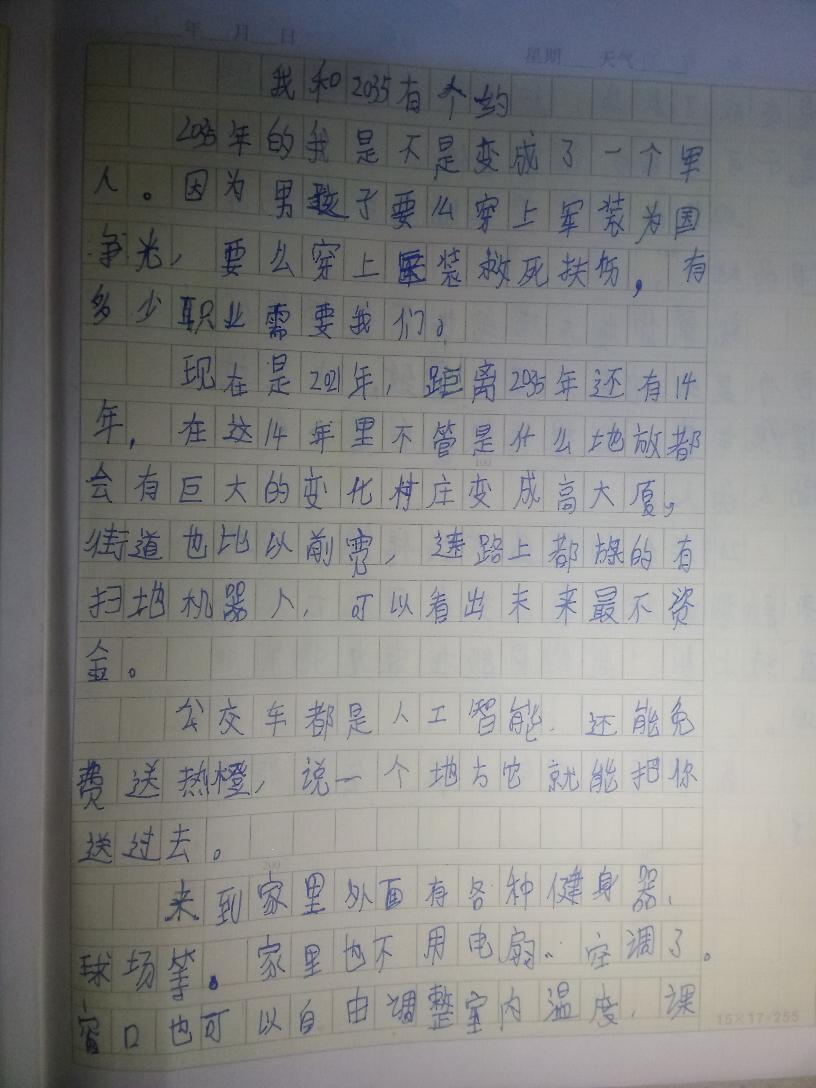 年 月 日
星期 天气
我和2035有个约
2035年的我是不是变成了一个军
人。因为男孩子要么穿上军装为国
争光，要么穿上医装救死扶伤，有
多少职业需要我们。
现在是2021年，距离2035年还有14
年，在这14年里不管是什么地放都
会有巨大的变化村庄变成高大厦，
街道也比以前宽，连路上都旅的有
扫地机器人，可以看出未来最不资
金。
公交车都是人工智能，还能免
费送热橙，说一个地方它就能把你
送过去。
来到家里外面有各种健身器、
球场等。家里也不用电扇、空调了。
窗口也可以自由调整室内温度，课
15×17=255